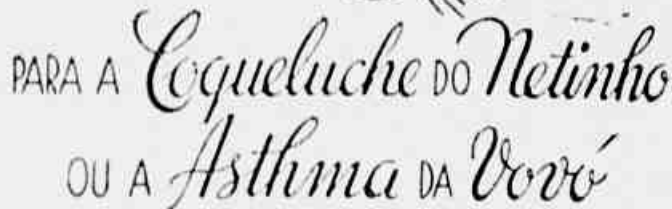 PARA A Coqueluche DO Netinho
OU A Asthma DA Vovó